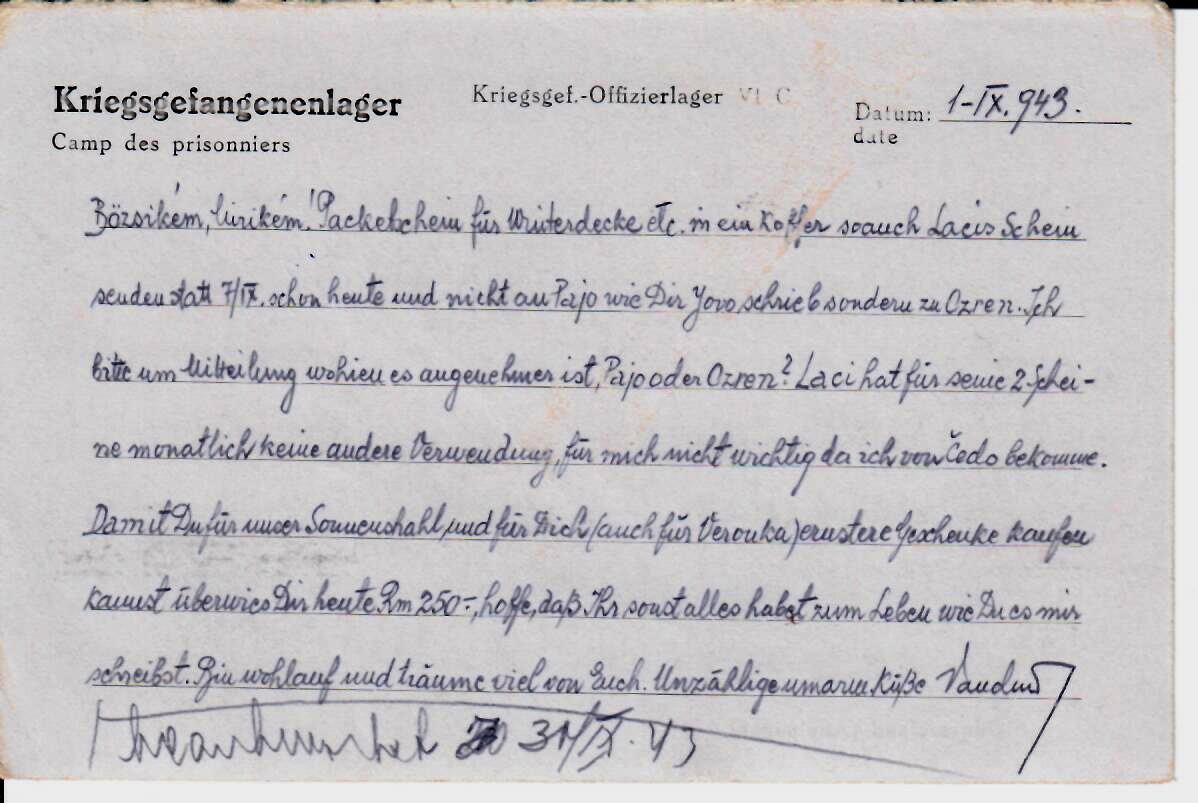 Kriegsgefangenenlager
Camp des prisonniers
Kriegsgef.-Offizierlager VI C
Datum: 1-IX.943.
date
Bözsikém, Mirikém! Packetschein für Winterdecke etc. in ein Koffer soauch Lacis Schein
senden statt 7/IX. schon heute und nicht an Pajo wie Dir Yovo schrieb sondern zu Ozren. Ich
bitte um Mitteilung wohien es angenehmer ist, Pajo oder Ozren? Laci hat für seine 2 Schei-
ne monatlich keine andere Verwendung, für mich nicht wichtig da ich von Čedo bekomme.
Damit Du für unser Sonnenstrahl und für Dich (auch für Veronka) ernstere Geschenke kaufen
kannst überwies Dir heute Rm 250-, hoffe, daß Ihr sonst alles habet zum Leben wie Du es mir
schreibst. Bin wohlauf und träume viel von Euch. Unzählige umarm Küße
43